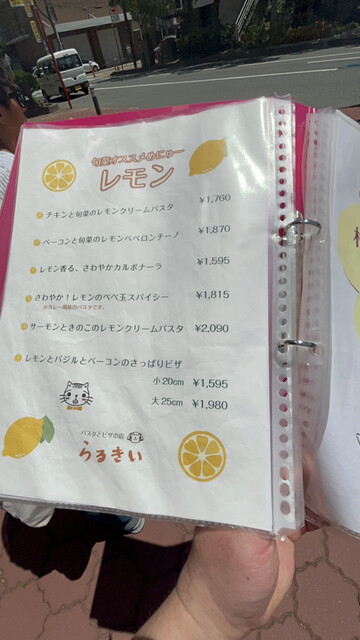 旬菜オススメめにゅー
レモン
チキンと旬菜のレモンクリームパスタ ¥1,760
ベーコンと旬菜のレモンペペロンチーノ ¥1,870
レモン香る、さわやかカルボナーラ ¥1,595
さわやか!レモンのペペ玉スパイシー ¥1,815
※カレー風味のパスタです。
サーモンときのこのレモンクリームパスタ ¥2,090
レモンとバジルとベーコンのさっぱりピザ
小20cm ¥1,595
大25cm ¥1,980
パスタとピザの店
らるきい